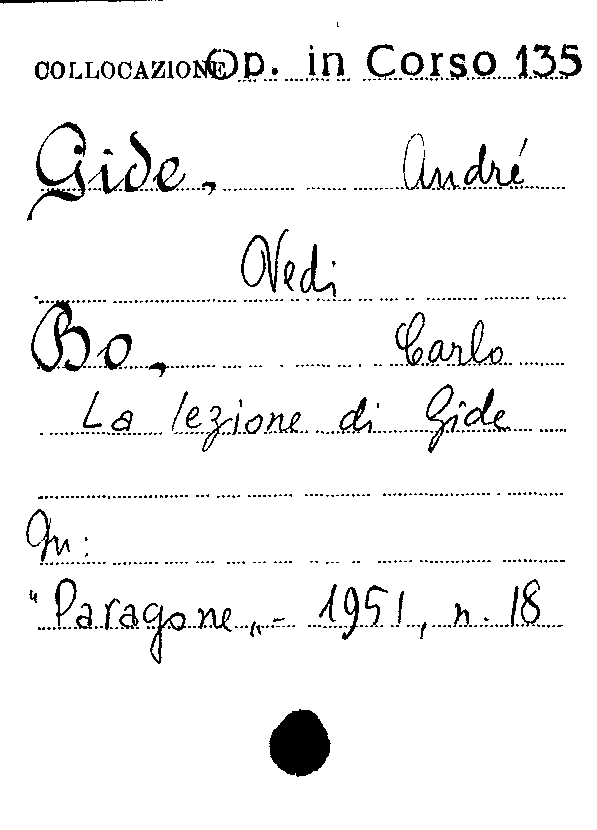 COLLOCAZIONE Op. in Corso 135
Gide, André
Vedi
Bo, Carlo
La lezione di Gide
In:
"Paragone„- 1951, n. 18